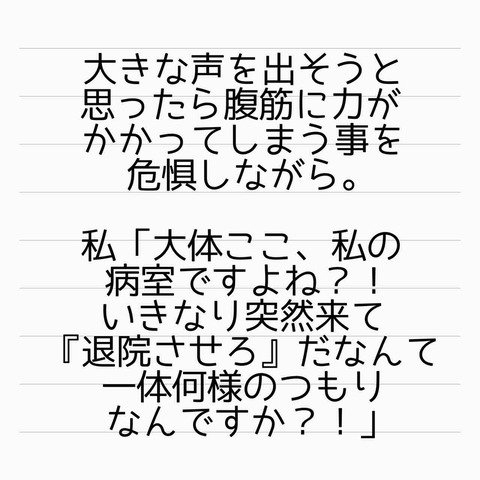 大きな声を出そうと
思ったら腹筋に力が
かかってしまう事を
危惧しながら。
私「大体ここ、私の
病室ですよね？！
いきなり突然来て
『退院させろ』だなんて
一体何様のつもり
なんですか？！」